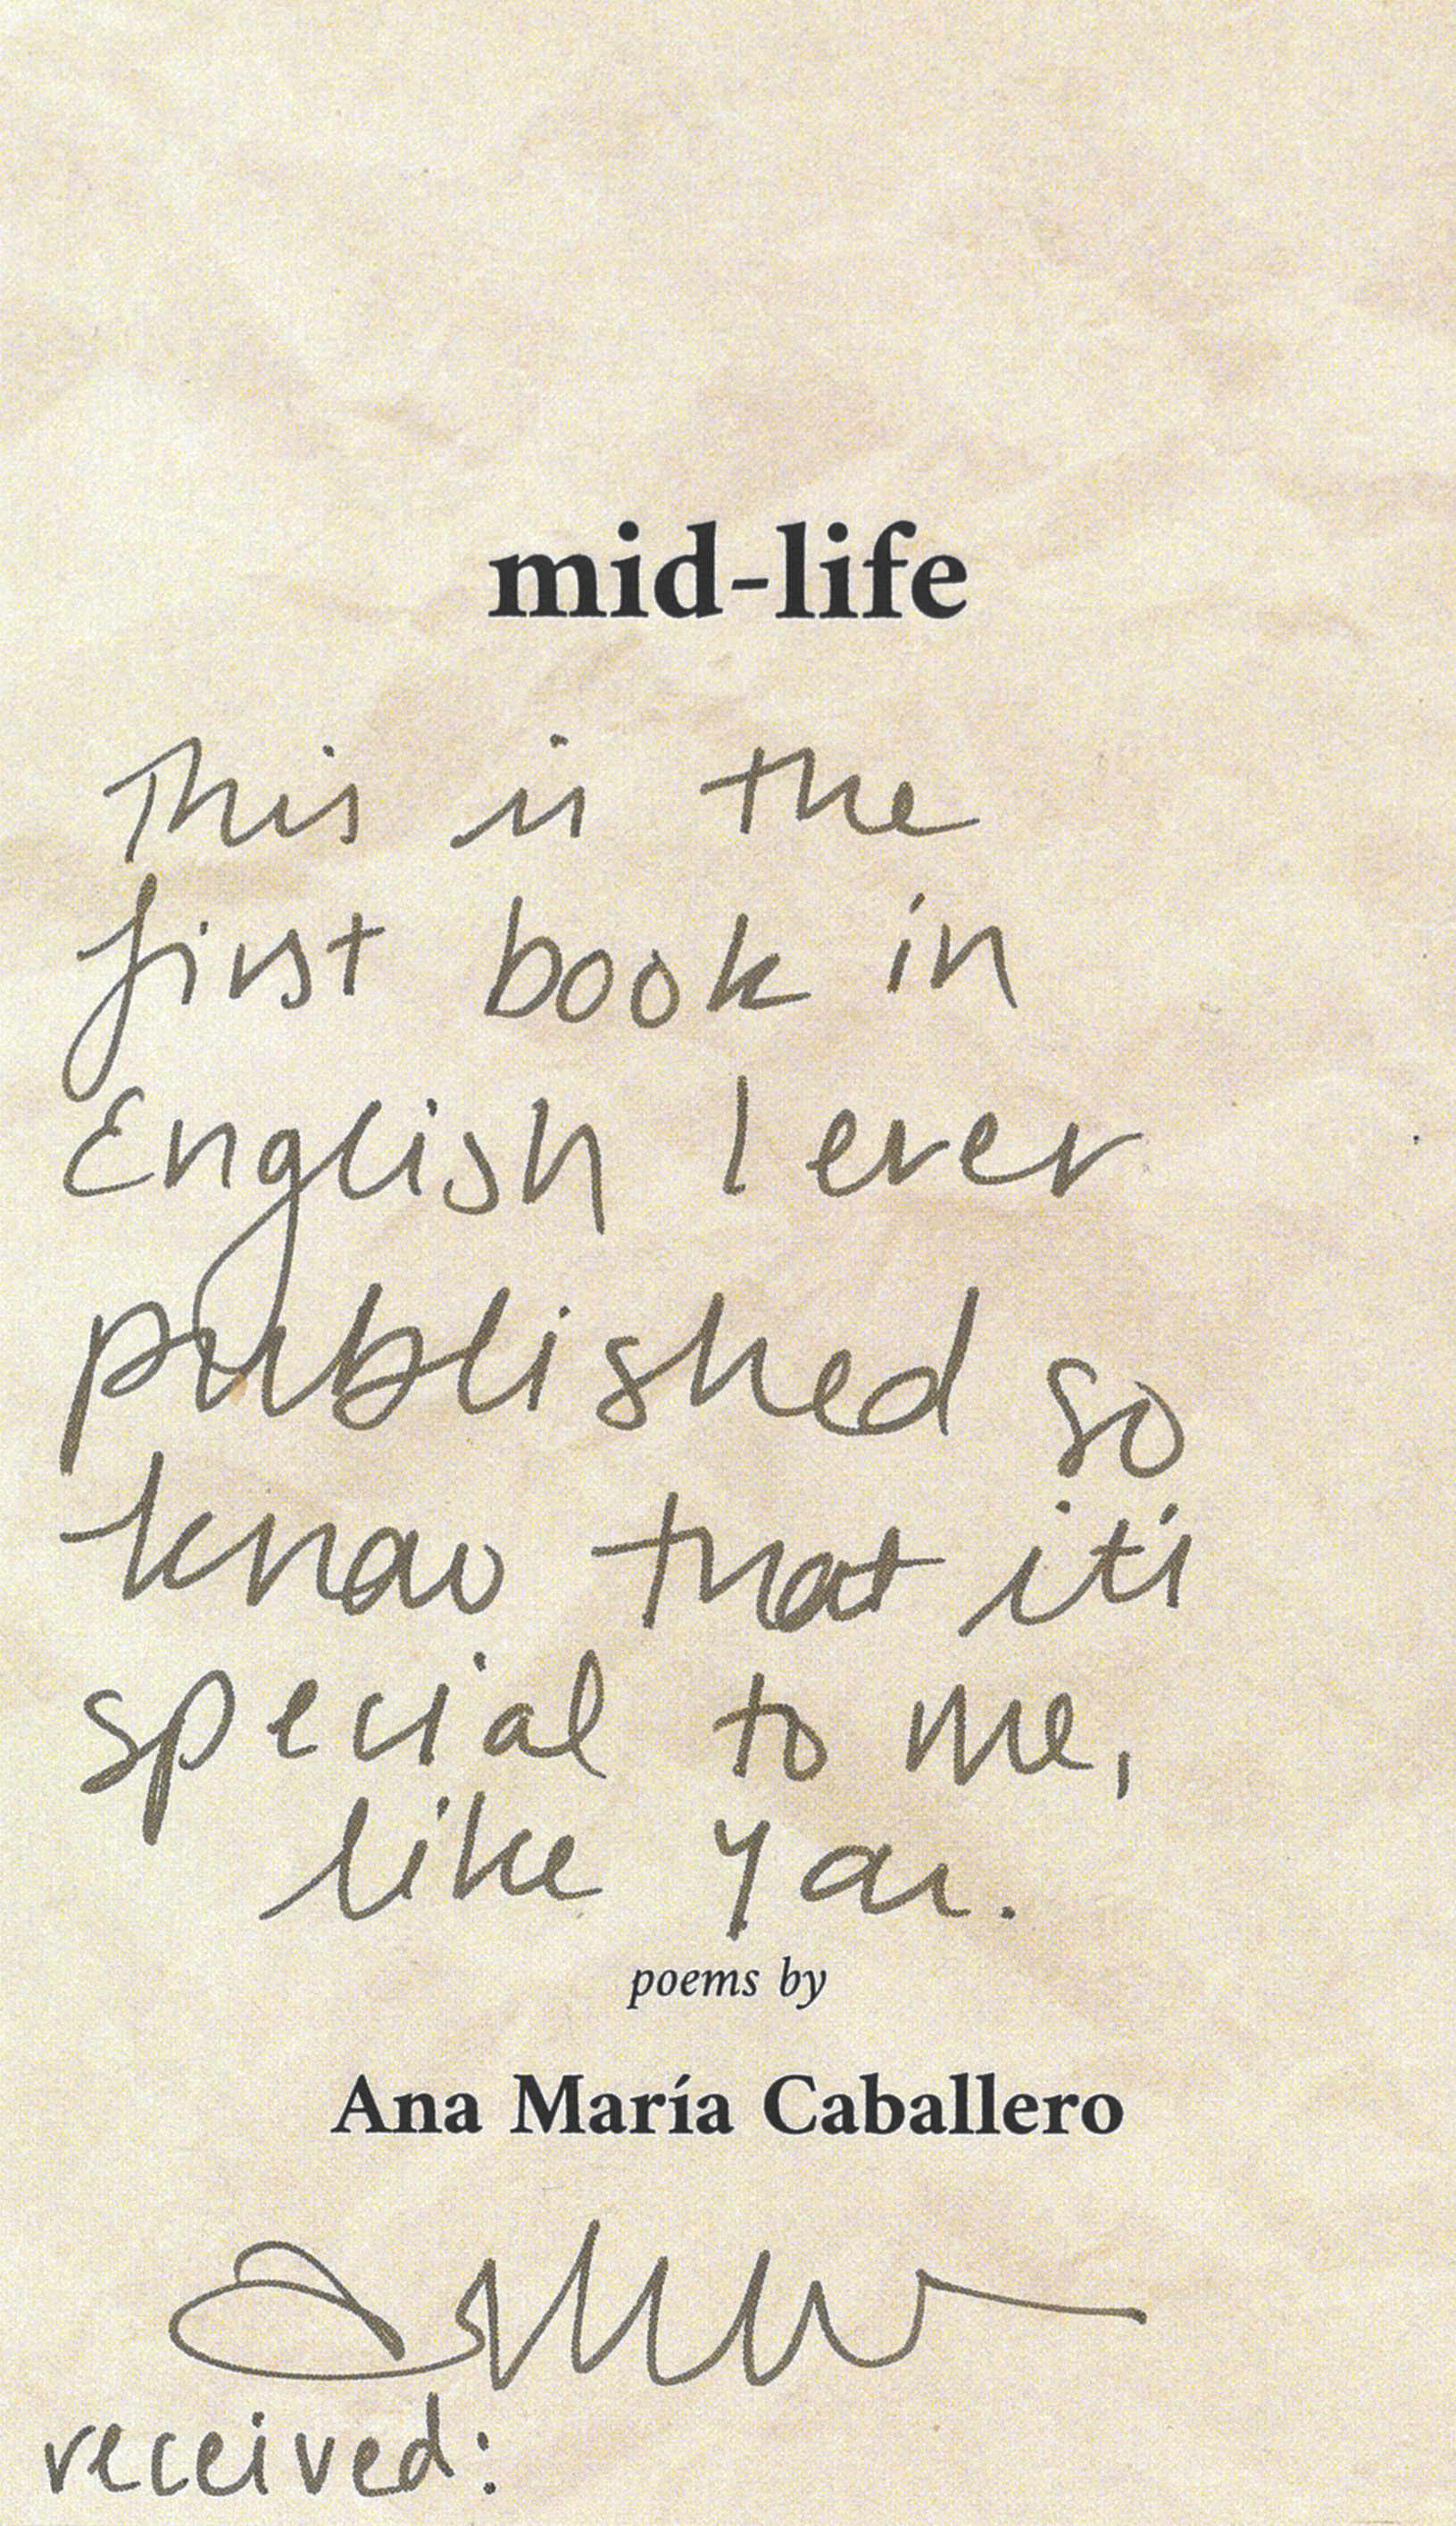 mid-life
This is the
first book in
English I ever
published so
know that it's
special to me,
like you.
poems by
Ana María Caballero
received: